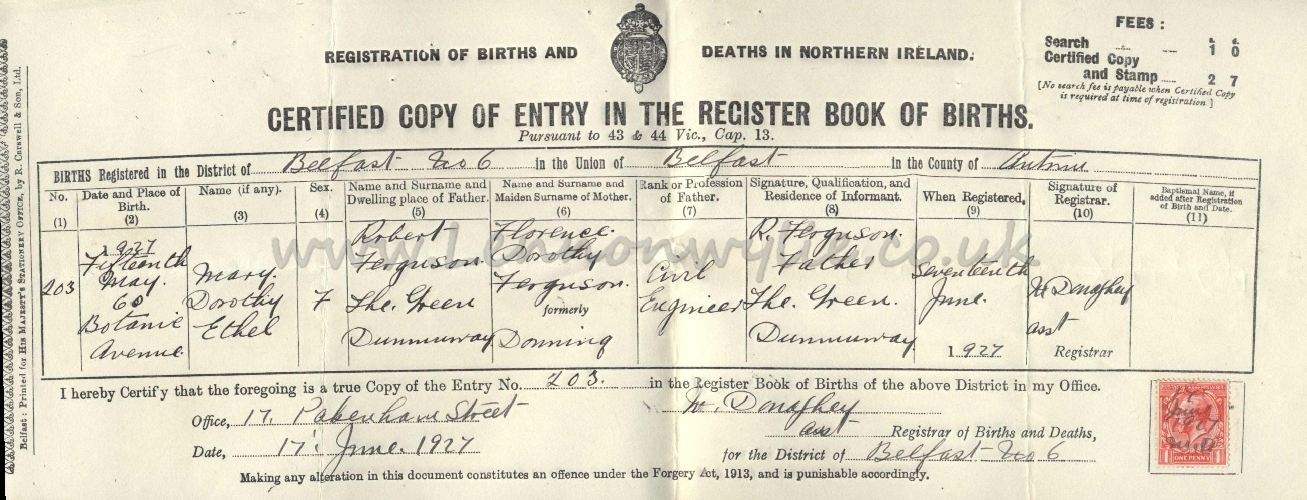 REGISTRATION OF BIRTHS AND DEATHS IN NORTHERN IRELAND.
FEES :
s. d.
Search ... ... 1 0
Certified Copy
and Stamp ... 2 7
[No search fee is payable when Certified Copy
is required at time of registration]
CERTIFIED COPY OF ENTRY IN THE REGISTER BOOK OF BIRTHS.
Pursuant to 43 & 44 Vic., Cap. 13.
BIRTHS Registered in the District of Belfast No 6 in the Union of Belfast in the County of Antrim
No.
(1)
Date and Place of
Birth.
(2)
Name (if any).
(3)
Sex.
(4)
Name and Surname and
Dwelling place of Father.
(5)
Name and Surname and
Maiden Surname of Mother.
(6)
Rank or Profession
of Father.
(7)
Signature, Qualification, and
Residence of Informant.
(8)
When Registered.
(9)
Signature of
Registrar.
(10)
Baptismal Name, if
added after Registration
of Birth and Date.
(11)
203
1927
Fifteenth
May.
60
Botanic
Avenue
Mary.
Dorothy
Ethel
F
Robert
Ferguson.
The. Green
Dunmurway
Florence.
Dorothy
Ferguson.
formerly
Donning
Civil
Engineer
R. Ferguson.
Father
The. Green.
Dunmurway
Seventeenth
June.
1927
W Donaghey
asst
Registrar
www. .co.uk
I hereby Certify that the foregoing is a true Copy of the Entry No. 203. in the Register Book of Births of the above District in my Office.
Office, 17. Pakenham Street
W. Donaghey
asst Registrar of Births and Deaths,
Date, 17. June. 1927
for the District of Belfast No 6
Making any alteration in this document constitutes an offence under the Forgery Act, 1913, and is punishable accordingly.
17
June
1927
ONE PENNY
Belfast : Printed for HIS MAJESTY'S STATIONERY OFFICE, by R. Carswell & Son, Ltd.